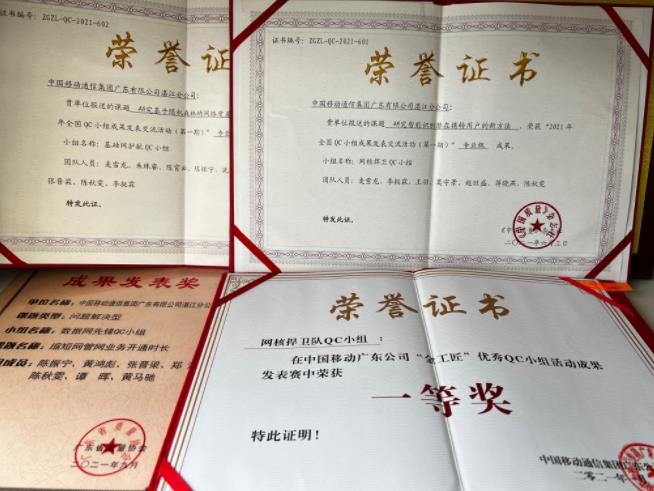 证书编号：ZGZL-QC-2021-602
荣誉证
中国移动通信集团广东有限公司湛江分公司：
贵单位报送的课题 研究基于随机森林的网络质
年全国QC小组成果发表交流活动（第一期）" 专业
小组名称：基础网护航QC小组
团队人员：麦雪龙、朱珠睿、陈育
张晋梁、陈秋雯、李挺霖
特发此证。
证书编号：ZGZL-QC-2021-601
荣誉证书
中国移动通信集团广东有限公司湛江分公司：
贵单位报送的课题 研究智能识别潜在携转用户的新方法 ，荣获"2021年
全国QC小组成果发表交流活动（第一期）" 专业级 成果。
小组名称：网核捍卫QC小组
团队人员：麦雪龙、李挺霖、王羽、莫宁荣、赵旺盛、蒋晓燕、陈秋雯
特发此证。
《中国质量》杂志社
二〇二一年六月三日
成果发表奖
单位名称：中国移动通信集团广东有限公司湛江分公
课题类型：问题解决型
小组名称：数据网先锋QC小组
课题名称：缩短网管网业务开通时长
成员：陈振宁、黄鸿彪、张晋梁、郑
陈秋雯、谭晖、黄马驰
广东省质量协会
二〇二一年九月
荣誉证书
网核捍卫队QC小组 ：
在中国移动广东公司"金工匠"优秀QC小组活动成果
发表赛中荣获
一等奖
特此证明！
中国移动通信集团广东公
二〇二一年